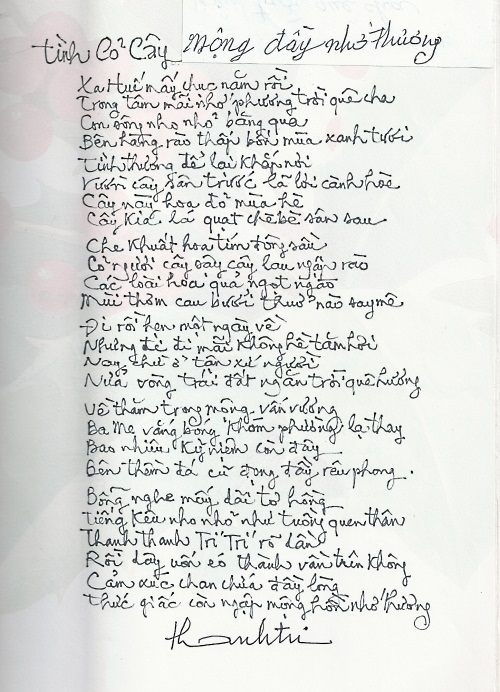 Tình Cỏ Cây Mộng đầy nhớ thương
Xa Huế mấy chục năm rồi
Trong tâm mãi nhớ phương trời quê cha
Con sông nho nhỏ băng qua
Bên hàng rào thấp bốn mùa xanh tươi
Tình thương để lại khắp nơi
Vườn cây sân trước lá lời cành hòe
Cây này hoa đỏ mùa hè
Cây kia lá quạt che bè sân sau
Che khuất hoa tím đông sầu
Cỏ người cây say cây lau ngập rào
Các loài hoa quả ngọt ngào
Mùi thơm cau bưởi thuở nào say mê
Đi rồi hẹn một ngày về
Nhưng đè đi mãi không hề tăm hơi
Nay chừ ở tận xứ người
Nửa vòng trái đất ngăn trời quê hương
Về thăm trong mộng vấn vương
Ba Mẹ vắng bóng khóm phường lạ thay
Bao nhiêu kỷ niệm còn đây
Bên thềm đá cũ đọng đầy rêu phong.
Bỗng nghe mấy dãi tơ hồng
Tiếng kêu nho nhỏ như tuồng quen thân
Thanh thanh Trí Trí rõ dần
Rồi dây uốn éo thành vần trên không
Cảm xúc chan chứa đầy lòng
Thức giấc còn ngập mộng hồn nhớ thương
thanhtri